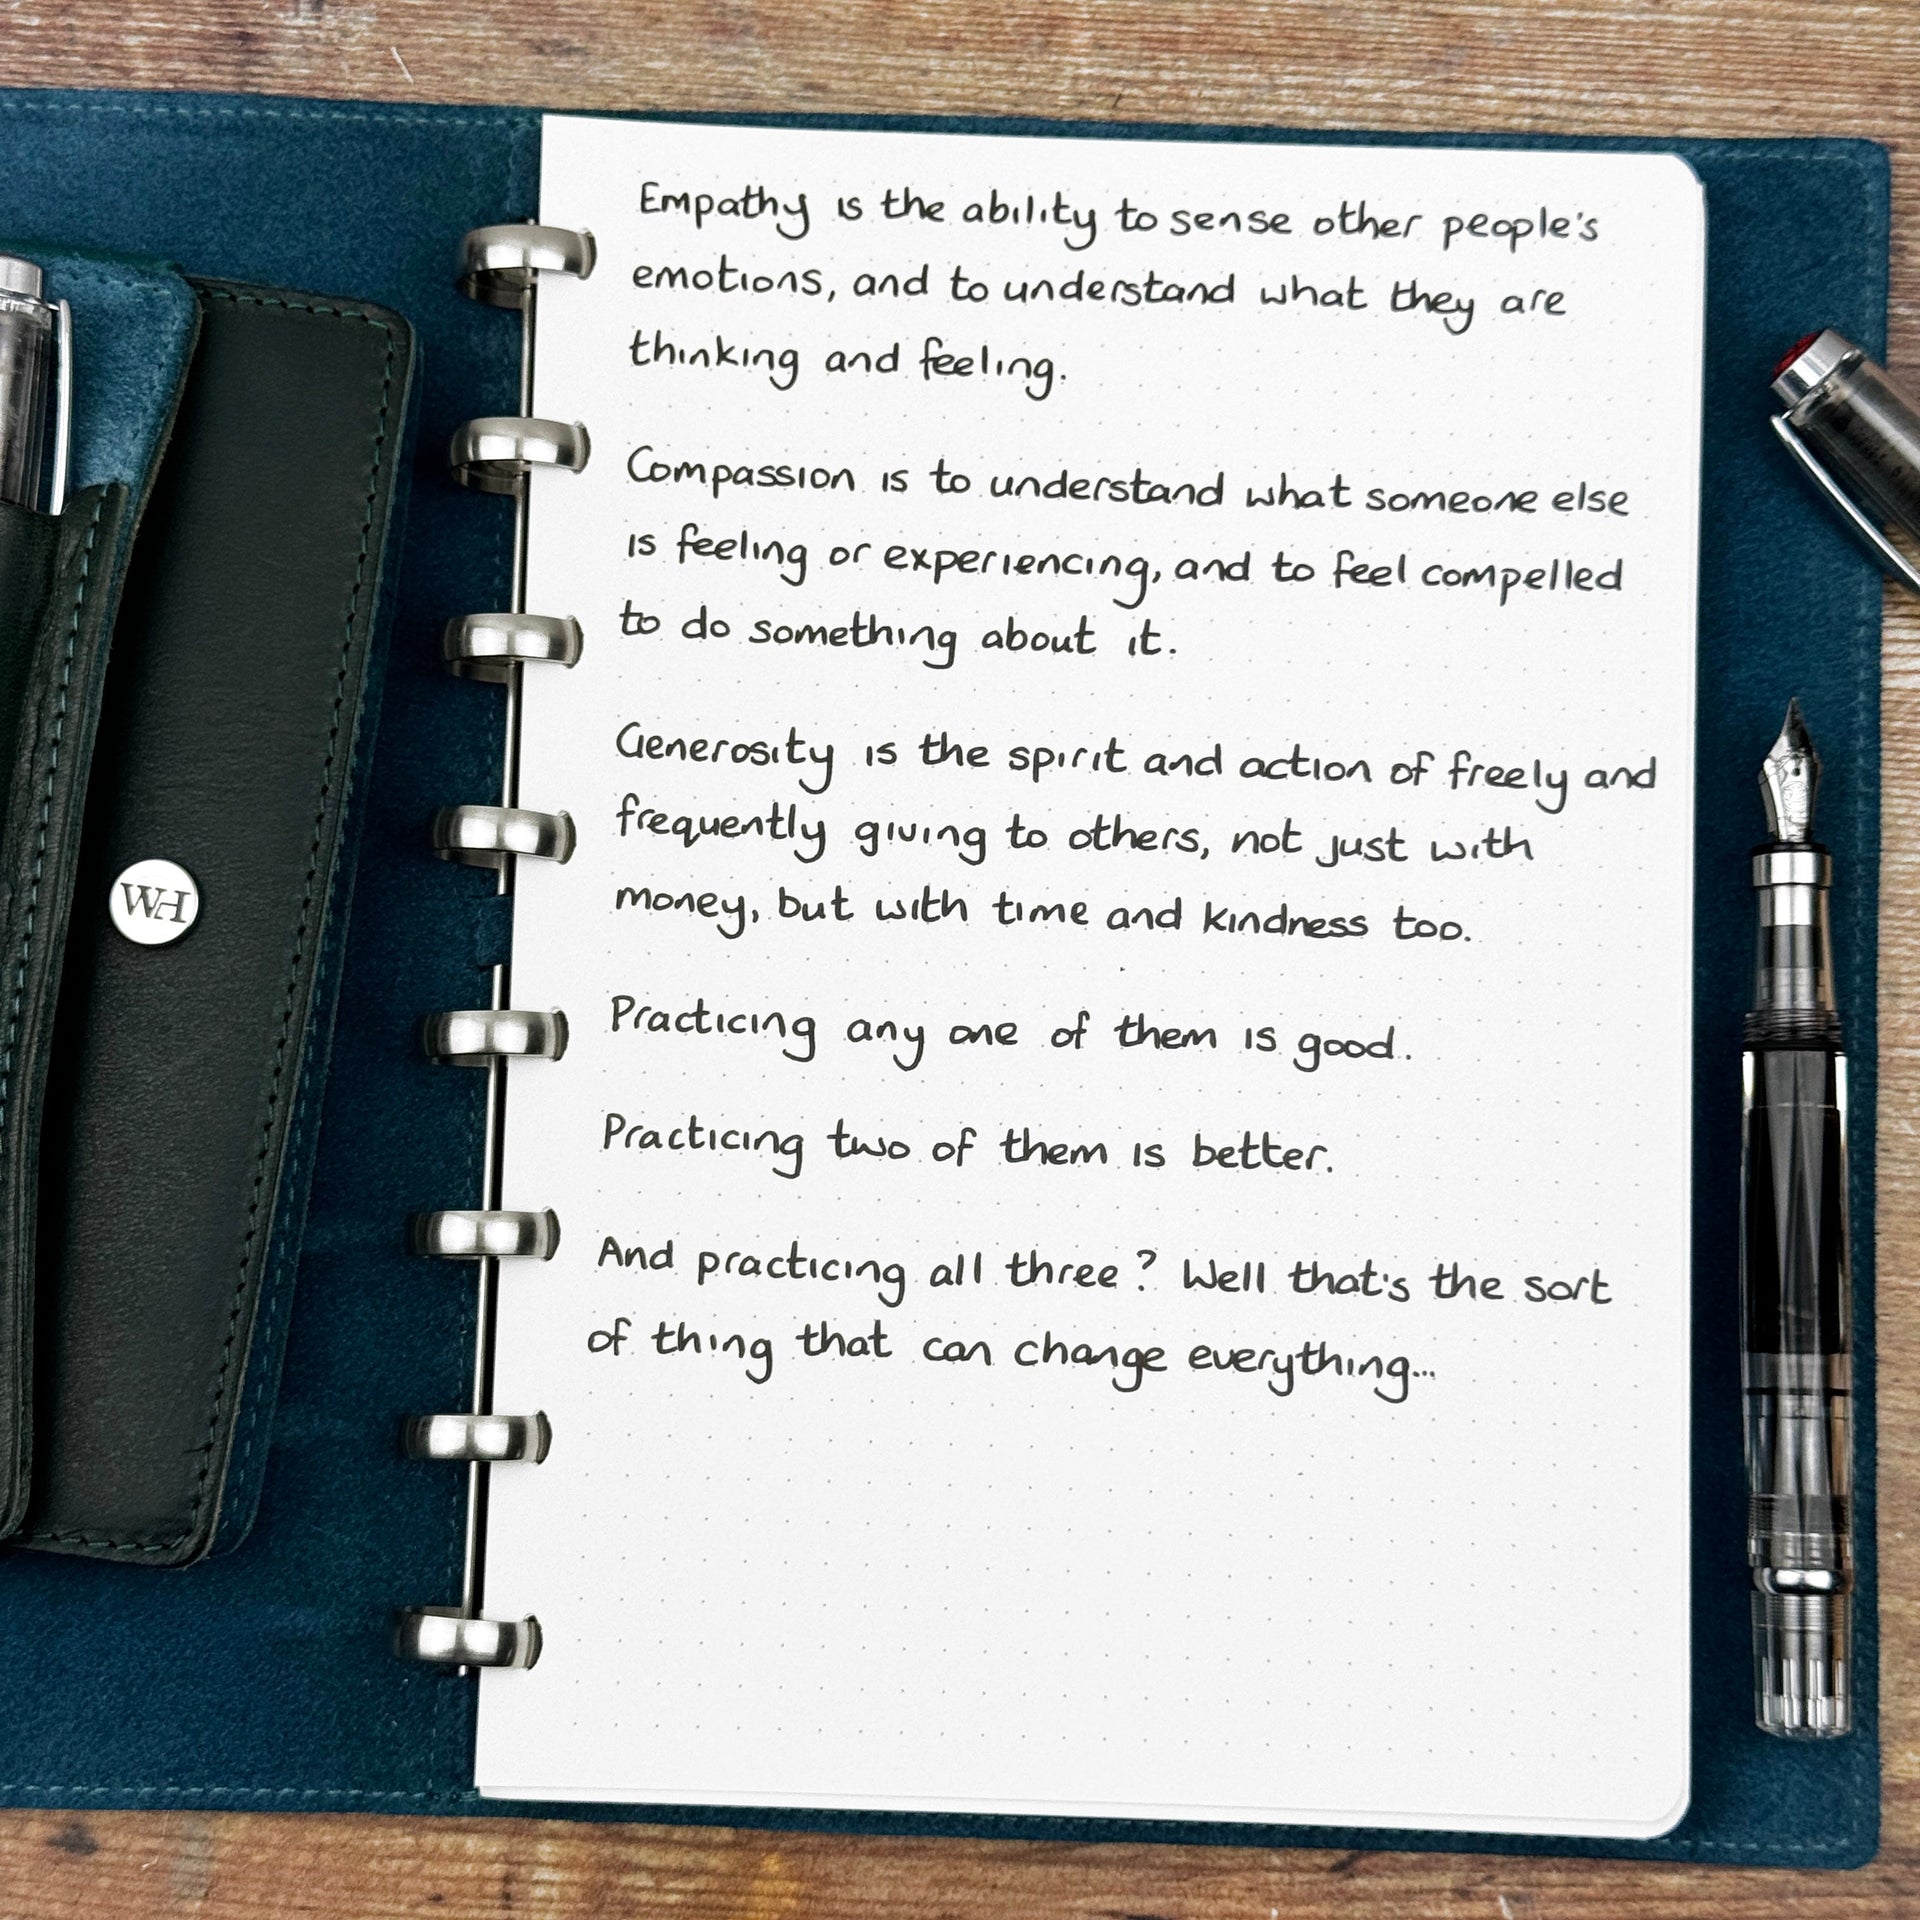 Empathy is the ability to sense other people's
emotions, and to understand what they are
thinking and feeling.
Compassion is to understand what someone else
is feeling or experiencing, and to feel compelled
to do something about it.
Generosity is the spirit and action of freely and
frequently giving to others, not just with
money, but with time and kindness too.
Practicing any one of them is good.
Practicing two of them is better.
And practicing all three? Well that's the sort
of thing that can change everything...
WH